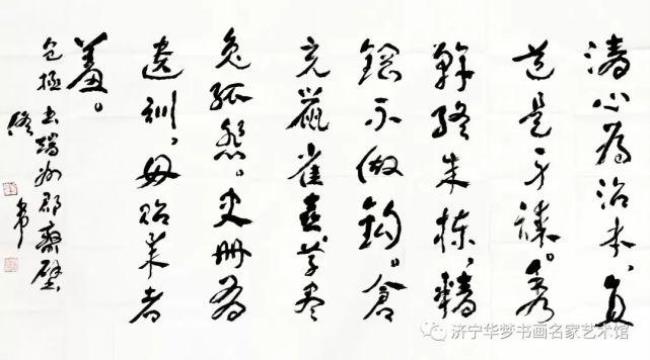 清心為治本、直
道是身謀。秀
幹終成棟、精
鋼不做鉤。倉
充鼠雀喜草盡
兔狐愁。史冊有
遺訓、毋貽来者
羞。
包拯书端州郡齋壁
济宁华梦书画名家艺术馆